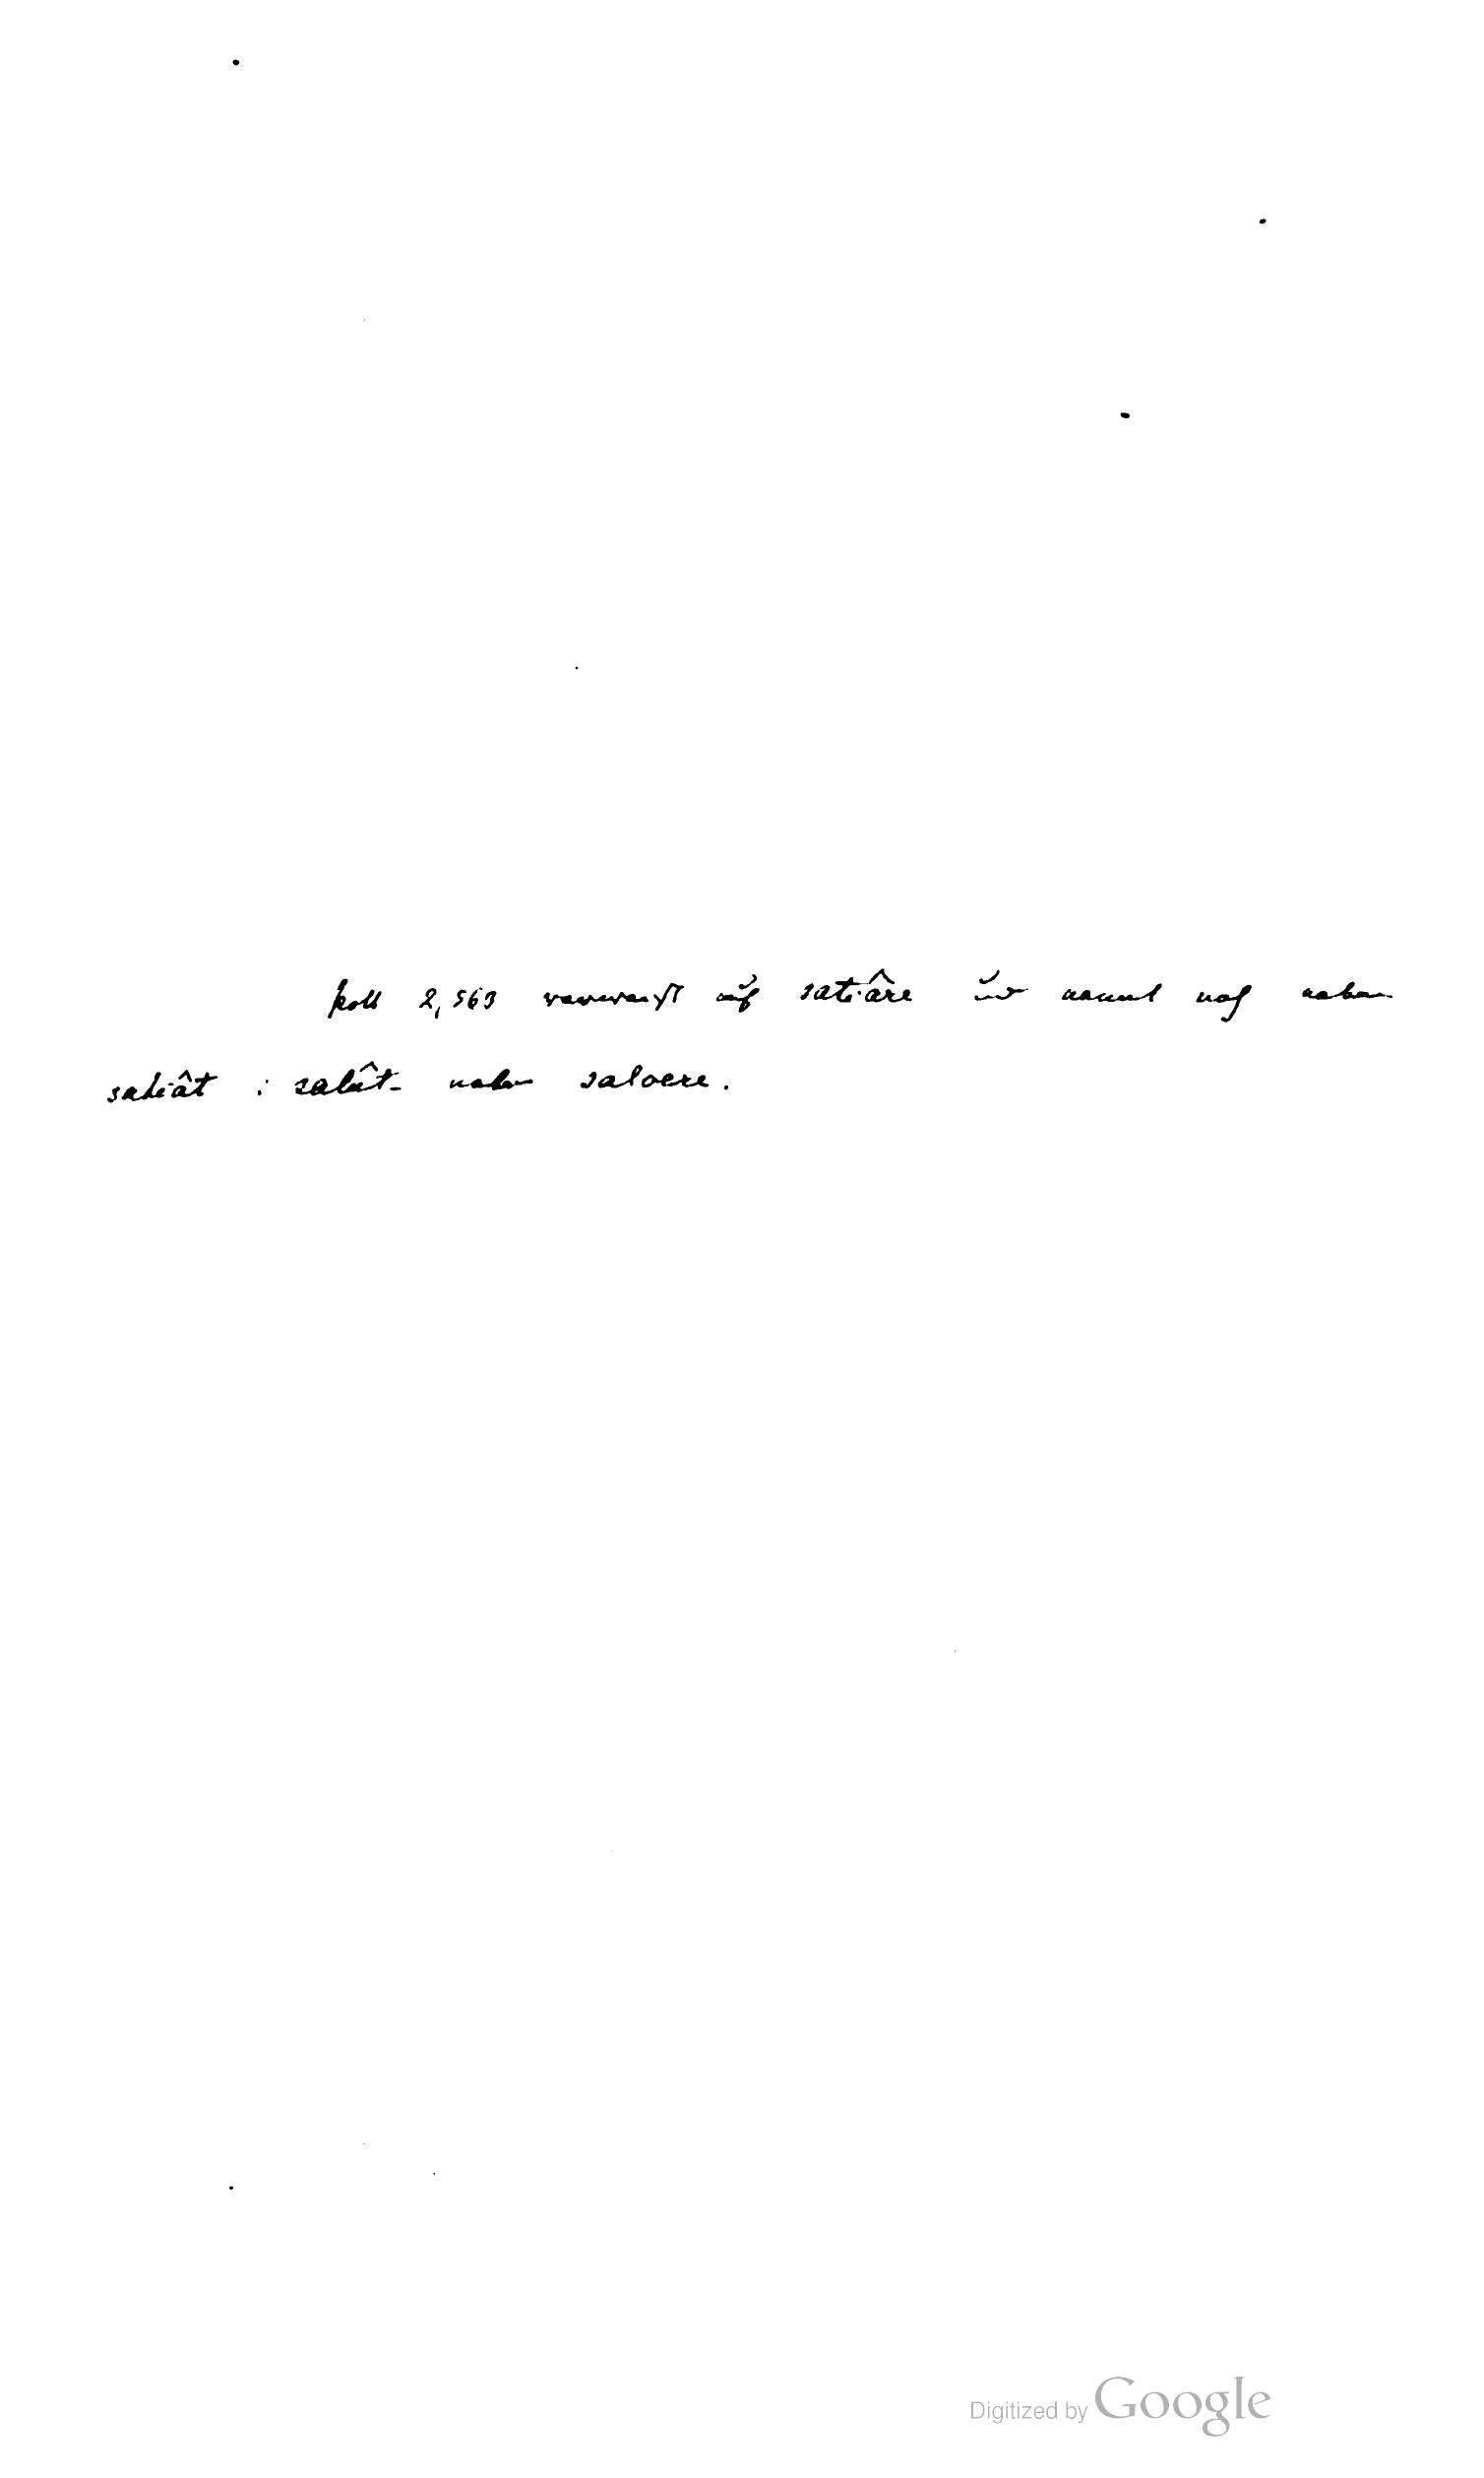 Pott 2,563 verweist auf satiâre und nennt noch neben
satiât : salût- neben salvere.
Digitized by Google